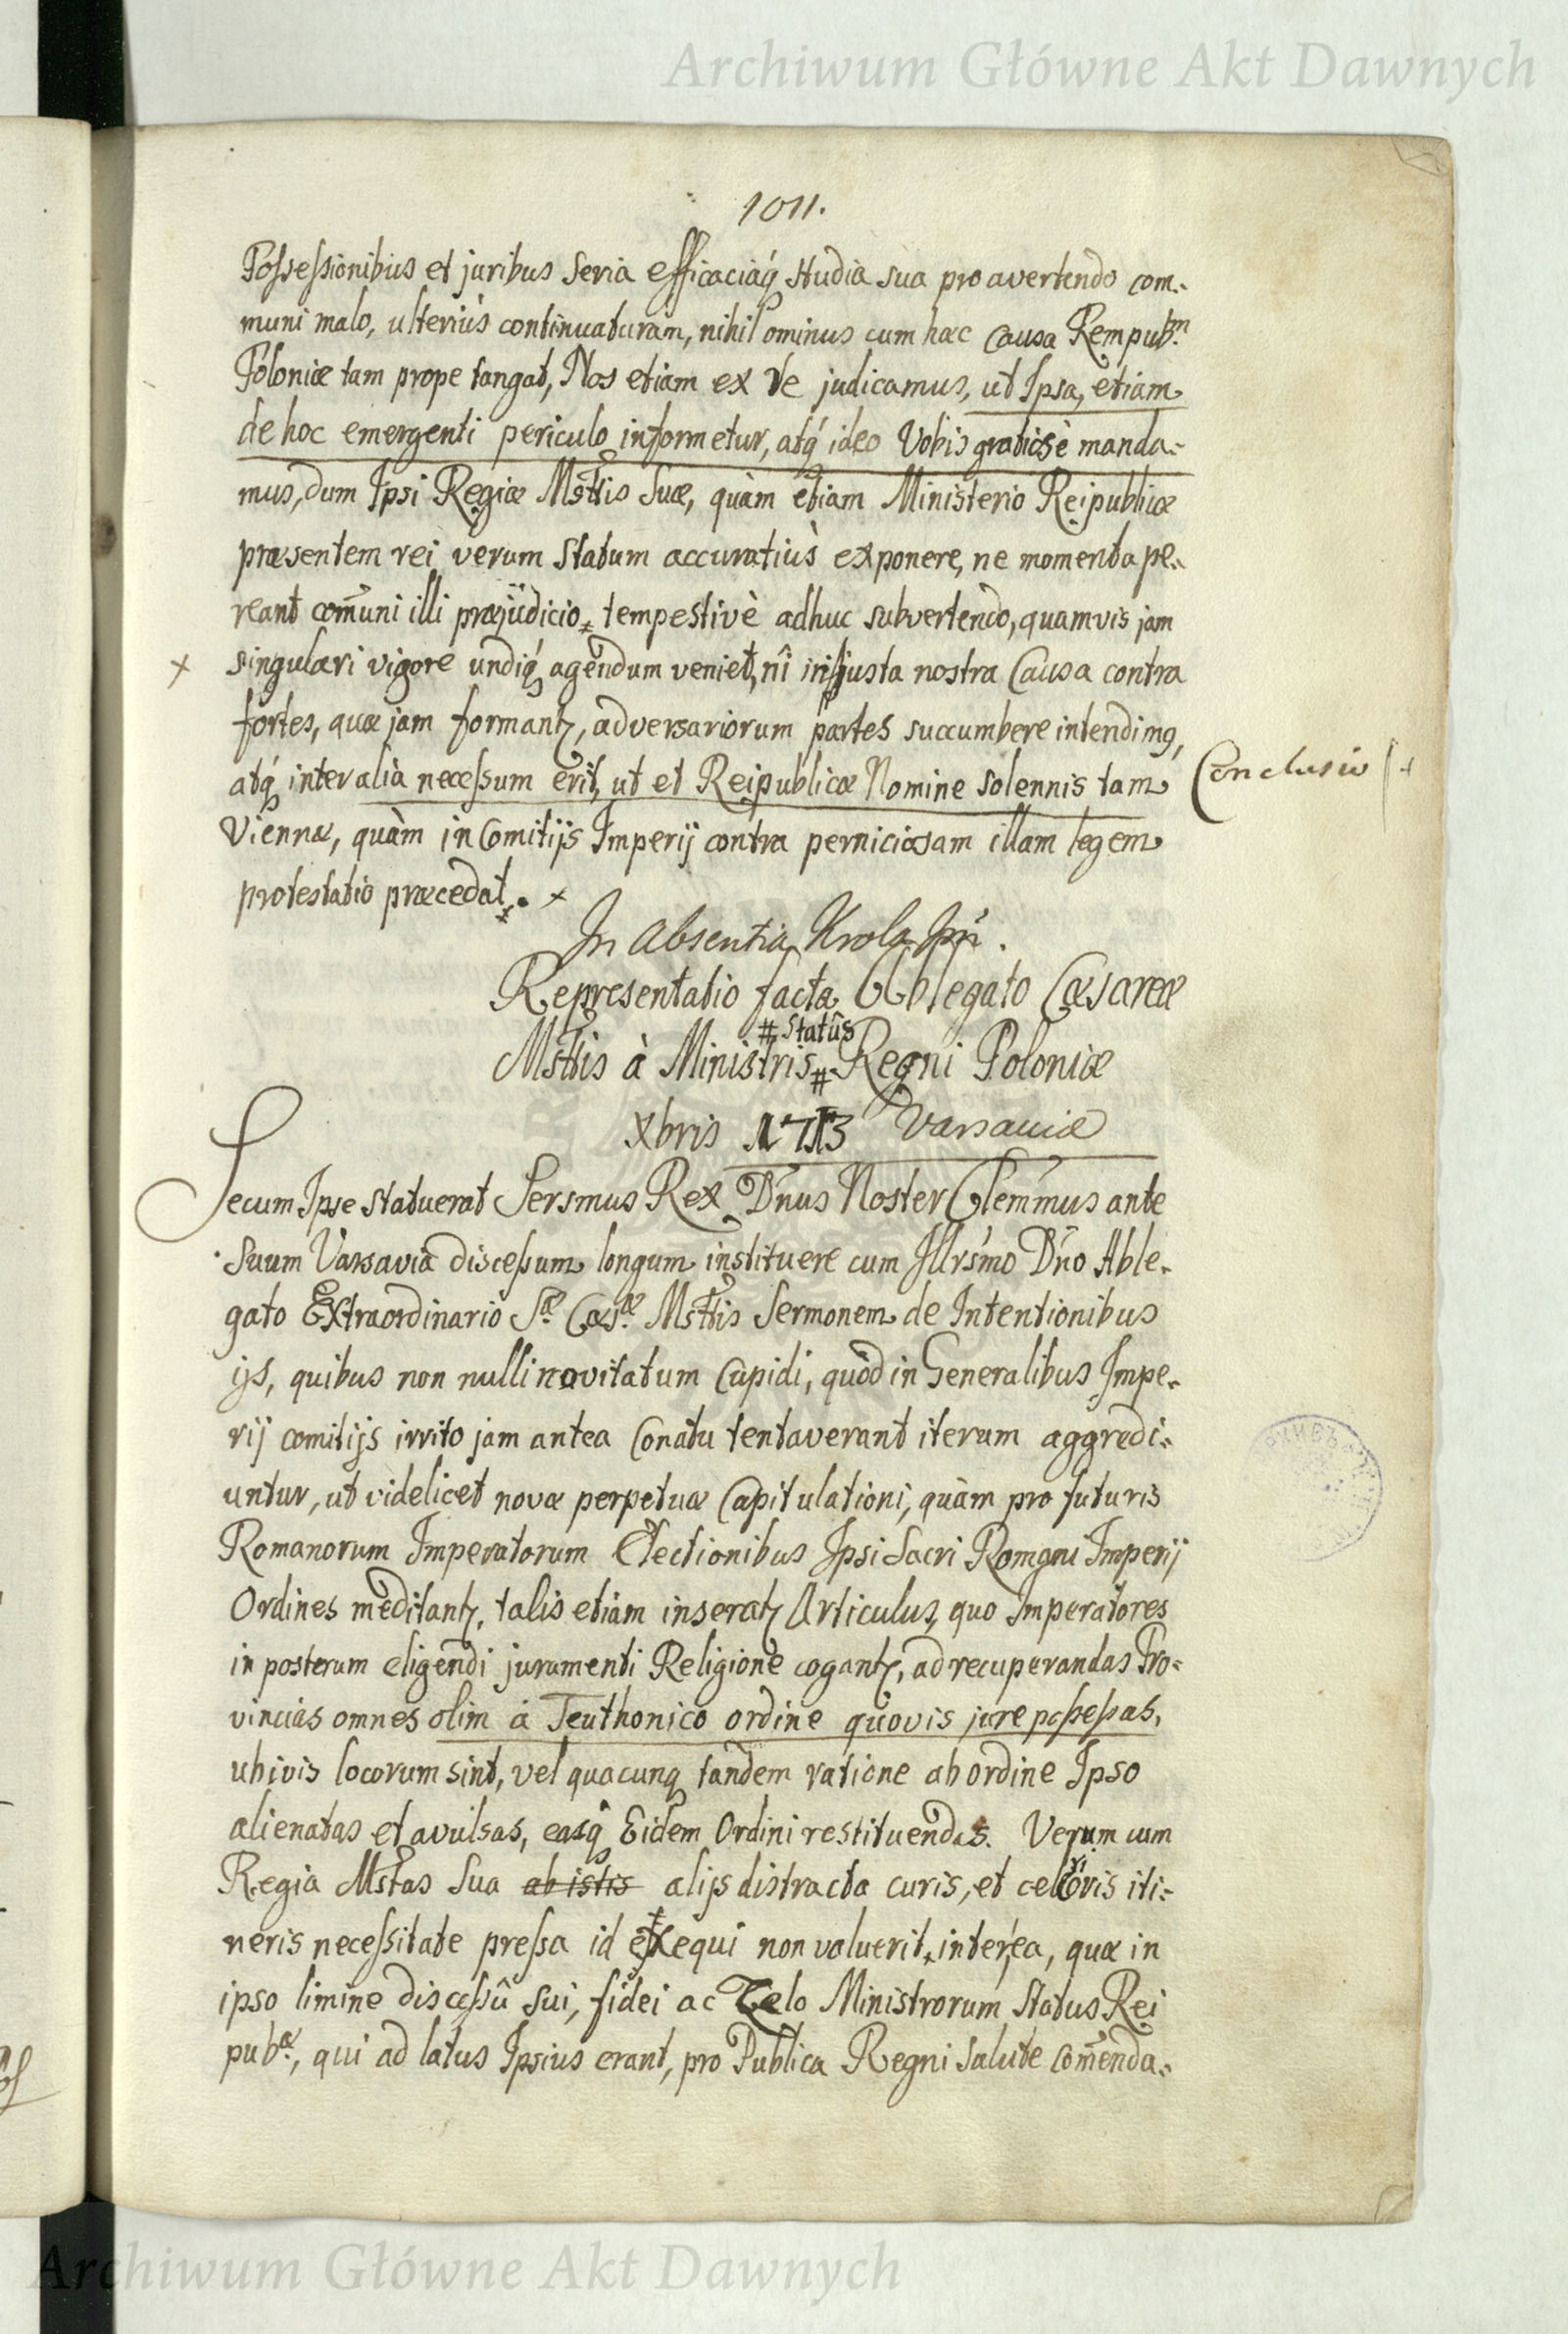 Archiwum Główne Akt Dawnych
1011.
Possessionibus et juribus seria efficaciaq́ studia sua pro avertendo com-
muni malo, ulteriùs continuaturam, nihil ominus cum hæc Causa Rempubᵐ.
Poloniæ tam prope tangat, Nos etiam ex re judicamus, ut Ipsa, etiam
de hoc emergenti periculo informetur, atq́ ideo Vobis gratiosè manda-
mus, dum Ipsi Regiæ Msttis Suæ, quàm etiam Ministerio Reipublicæ
præsentem rei verum statum accuratiùs exponere, ne momenta pe-
reant com̃uni illi præjudicio, tempestivè adhuc subvertendo, quamvis jam
x singulari vigore undiq́ agendum veniet, nî in justa nostra Causa contra
fortes, quæ jam formantʒ, adversariorum partes succumbere intendimꝰ,
atq́ inter alia necessum erit, ut et Reipublicæ Nomine solennis tam
Conclusio
Viennæ, quàm in Comitijs Imperij contra perniciosam illam legem
protestatio præcedat. x
In Absentia Krola Jm̃.
Representatio facta Ablegato Cæsareæ
# Statûs
Msttis à Ministris # Regni Poloniæ
Xbris 1713 Varsaviæ
Secum Ipse statuerat Sersmus Rex Dñus Noster Clem̃mus ante
suum Varsaviâ discessum longum instituere cum Illrsmo Dño Able-
gato Extraordinario Sæ. Cæsæ. Msttis Sermonem de Intentionibus
ijs, quibus non nulli novitatum Cupidi, quòd in Generalibus Impe-
rij comitijs irrito jam antea Conatu tentaverant iterum aggredi-
untur, ut videlicet novæ perpetuæ Capitulationi, quàm pro futuris
Romanorum Imperatorum Electionibus Ipsi Sacri Romani Imperij
Ordines meditantʒ, talis etiam inseratʒ Articulus, quo Imperatores
in posterum eligendi juramenti Religione cogantʒ, ad recuperandas Pro-
vincias omnes olim à Teuthonico ordine quovis jure possessas,
ubivis locorum sint, vel quacunq tandem ratione ab ordine Ipso
alienatas et avulsas, easq́ Eidem Ordini restituendas. Verum cum
Regia Mstas Sua ab istis alijs distracta curis, et celeris iti-
neris necessitate pressa id exequi non valuerit, interea, quæ in
ipso limine discessû sui, fidei ac Zelo Ministrorum Status Rei
pubæ., qui ad latus Ipsius erant, pro Publica Regni salute com̃enda-
Archiwum Główne Akt Dawnych